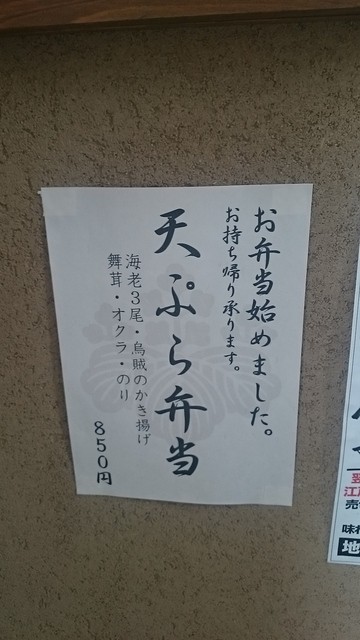 お弁当始めました。
お持ち帰り承ります。
天ぷら弁当
海老3尾・烏賊のかき揚げ
舞茸・オクラ・のり
850円
江
売
味
地